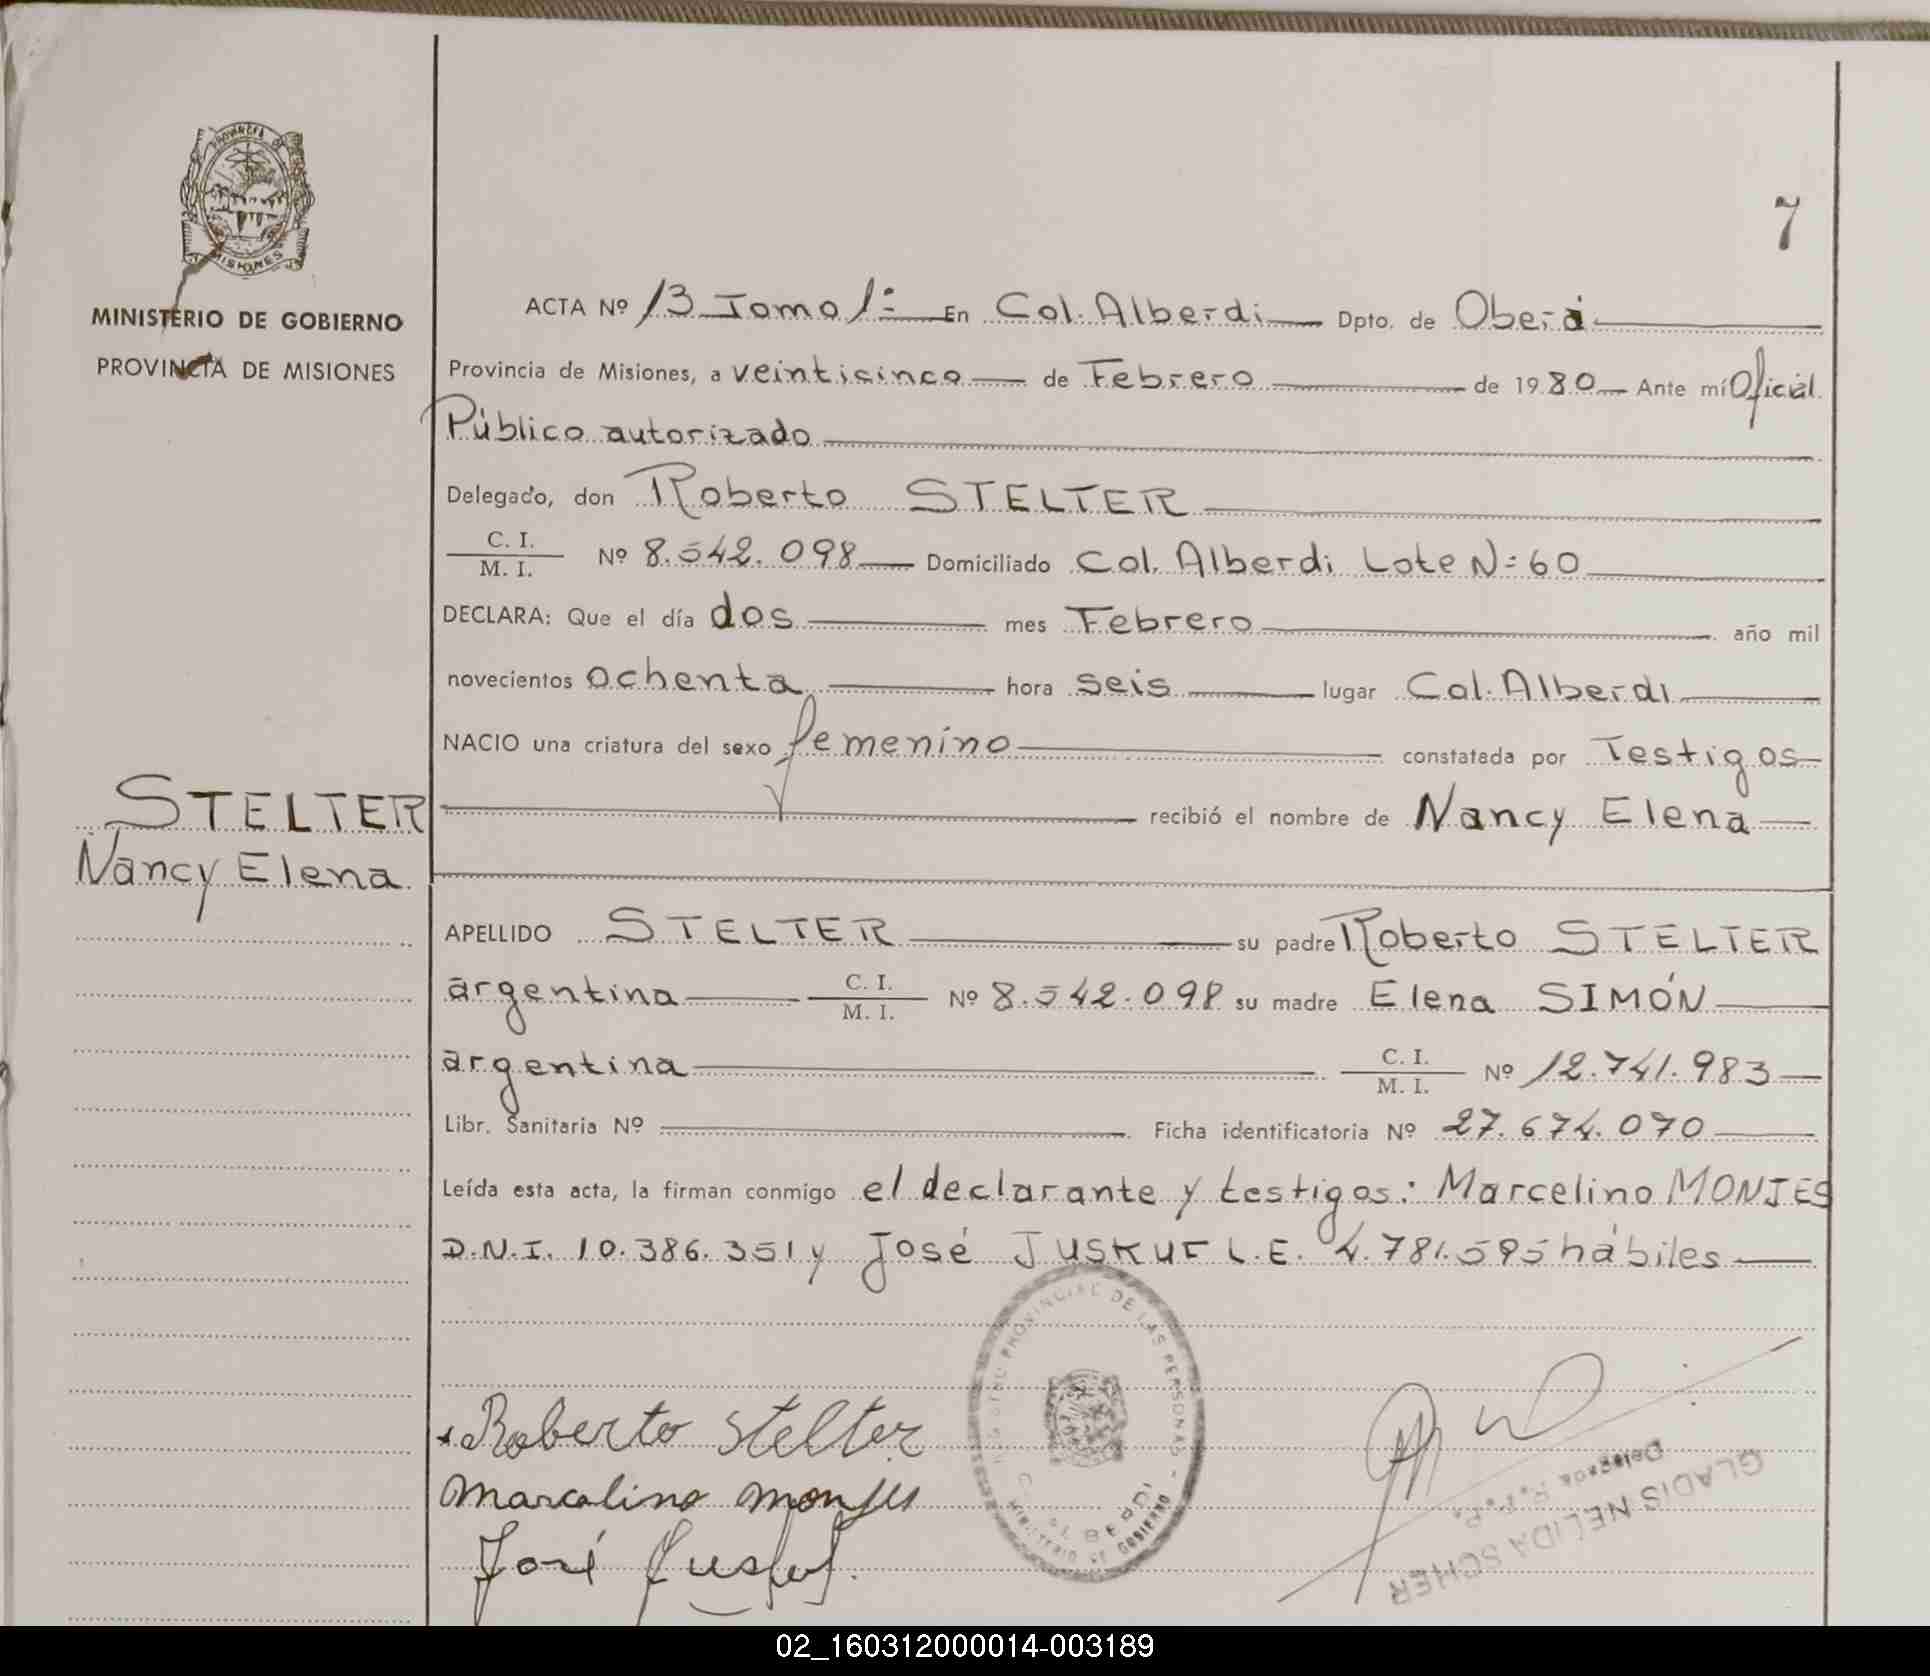 7
PROVINCIA DE
MISIONES
MINISTERIO DE GOBIERNO
PROVINCIA DE MISIONES
ACTA Nº 13 Tomo 1= En Col. Alberdi Dpto. de Oberá
Provincia de Misiones, a veinticinco de Febrero de 1980 Ante mí Oficial
Público autorizado
Delegado, don Roberto STELTER
C. I.
M. I. Nº 8.542.098 Domiciliado Col. Alberdi Lote N=60
DECLARA: Que el día dos mes Febrero año mil
novecientos ochenta hora seis lugar Col. Alberdi
NACIO una criatura del sexo femenino constatada por Testigos
recibió el nombre de Nancy Elena
STELTER
Nancy Elena
APELLIDO STELTER su padre Roberto STELTER
argentina C. I. M. I. Nº 8.542.098 su madre Elena SIMÓN
argentina C. I. M. I. Nº 12.741.983
Libr. Sanitaria Nº Ficha identificatoria Nº 27.674.070
Leída esta acta, la firman conmigo el declarante y testigos: Marcelino MONJES
D.N.I. 10.386.351 y José JUSKUF L.E. 4.781.595 hábiles
Roberto Stelter
Marcelino Monjes
José
PROVINCIAL DE LAS PERSONAS
ALBERDI
MINISTERIO DE GOBIERNO
GLADIS NELIDA SCHER
Delegada
02_160312000014-003189